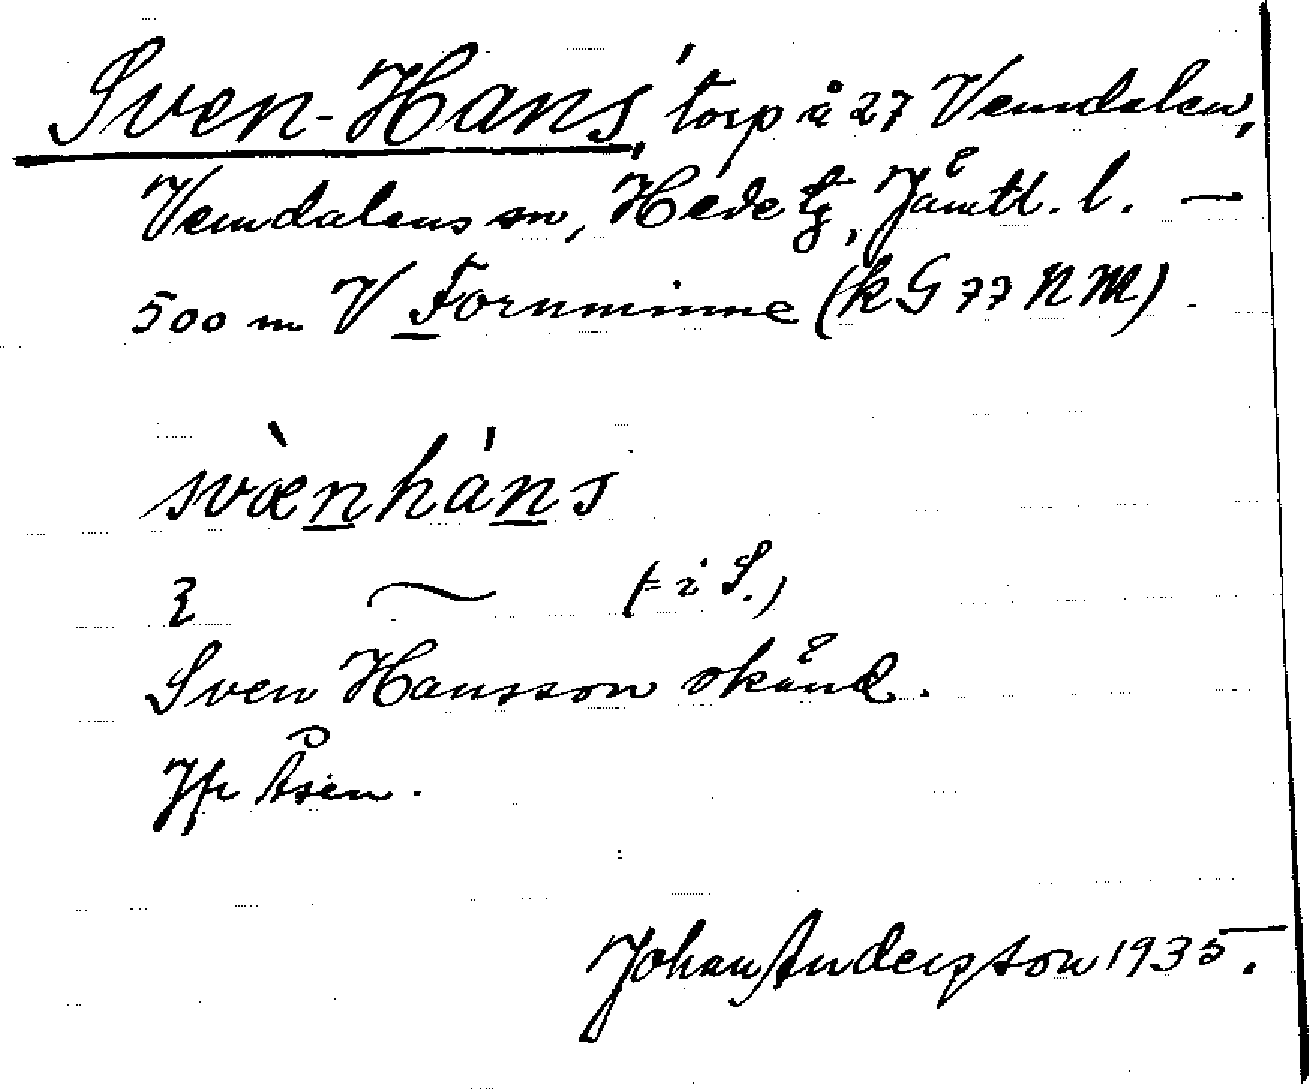 Sven-Hans, torp å 27 Vemdalen,
Vemdalens sn, Hede tg, Jämtl. l. —
500 m V Fornminne (k G 77 N M).
svæ̀nháns
ξ ~ (= i S.)
Sven Hansson okänd.
Jfr Åsen.
Johan Anderzton 1935.